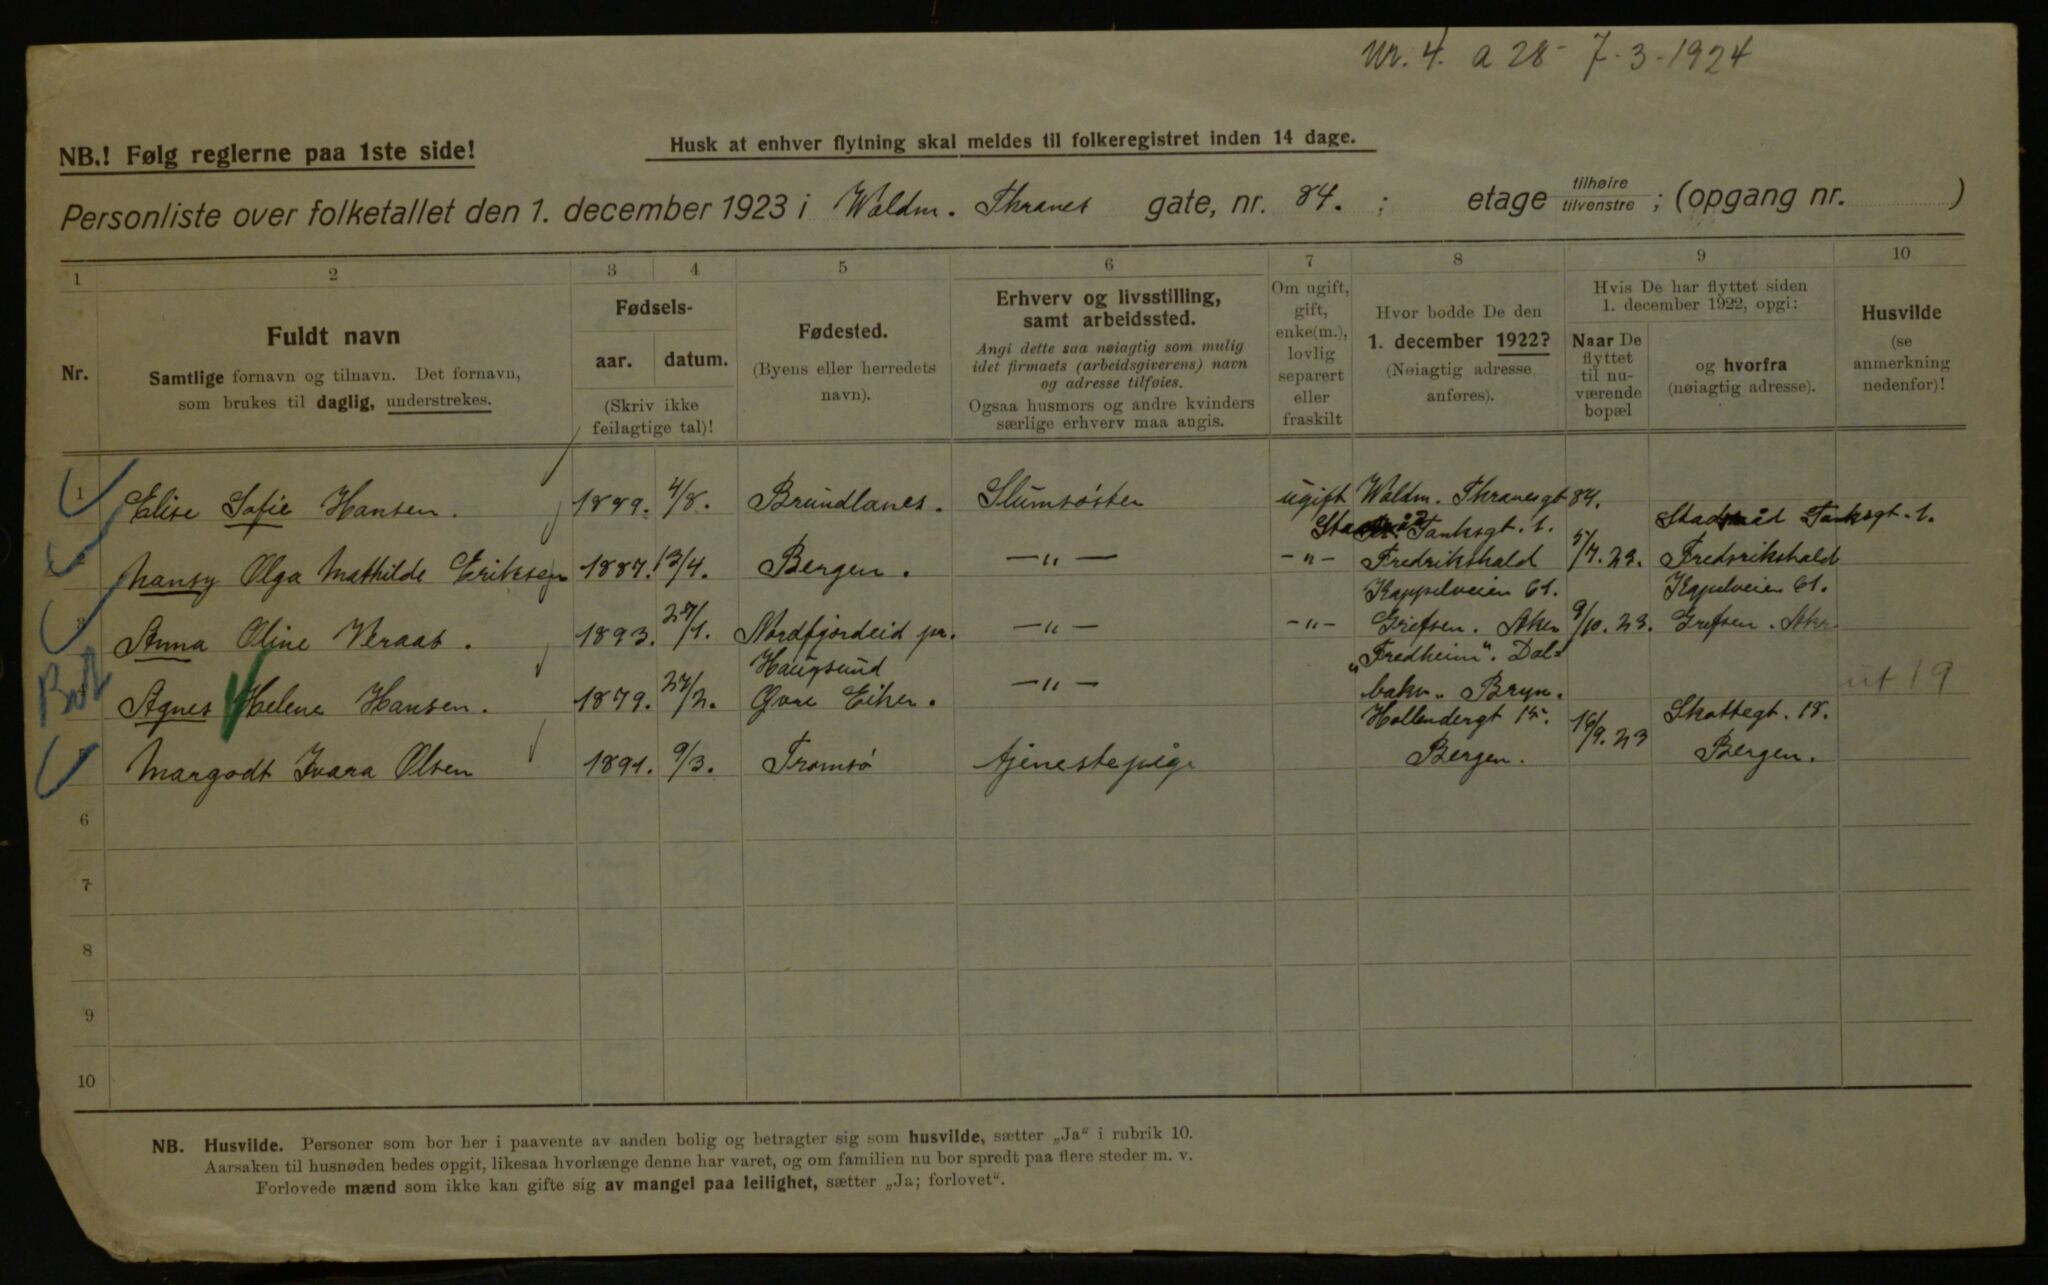 Nr. 4. a 28- 7-3-1924
NB.! Følg reglerne paa 1ste side!
Husk at enhver flytning skal meldes til folkeregistret inden 14 dage.
Personliste over folketallet den 1. december 1923 i Waldm. Thranes gate, nr. 84. ; etage tilhøire tilvenstre ; (opgang nr. )
1 2 3 4 5 6 7 8 9 10
Nr.
Fuldt navn
Samtlige fornavn og tilnavn. Det fornavn,
som brukes til daglig, understrekes.
Fødsels-
aar. datum.
(Skriv ikke
feilagtige tal)!
Fødested.
(Byens eller herredets
navn).
Erhverv og livsstilling,
samt arbeidssted.
Angi dette saa nøiagtig som mulig
idet firmaets (arbeidsgiverens) navn
og adresse tilføies.
Ogsaa husmors og andre kvinders
særlige erhverv maa angis.
Om ugift,
gift,
enke(m.),
lovlig
separert
eller
fraskilt
Hvor bodde De den
1. december 1922?
(Nøiagtig adresse
anføres).
Hvis De har flyttet siden
1. december 1922, opgi:
Naar De
flyttet
til nu-
værende
bopæl
og hvorfra
(nøiagtig adresse).
Husvilde
(se
anmerkning
nedenfor)!
1 Elise Sofie Hansen. 1889. 4/8. Brundlanes. Slumsøster ugift Waldm. Thranesgt 84.
Tanksgt. 1. Tanksgt. 1.
Nansy Olga Mathilde Eriksen 1887. 13/4. Bergen. —"— -"- Fredrikshald 5/7. 23. Fredrikshald
Kappelveien 61. Kapelveien 61.
3 Anna Oline Veraas. 1893. 27/1. Nordfjordeid pr. —"— -"- Grefsen. Aker 9/10. 23. Grefsen. Aker
Haugsund "Fredheim". Dal-
Agnes Helene Hansen. 1879. 27/2. Øvre Eiker. —"— bakn. Bryn. ut 19
Hollendergt 15. Skottegt. 18.
5 Margodt Ivara Olsen 1891. 9/3. Tromsø tjenestepige Bergen. 16/9. 23 Bergen.
6
7
8
9
10
NB. Husvilde. Personer som bor her i paavente av anden bolig og betragter sig som husvilde, sætter „Ja" i rubrik 10.
Aarsaken til husnøden bedes opgit, likesaa hvorlænge denne har varet, og om familien nu bor spredt paa flere steder m. v.
Forlovede mænd som ikke kan gifte sig av mangel paa leilighet, sætter „Ja; forlovet".